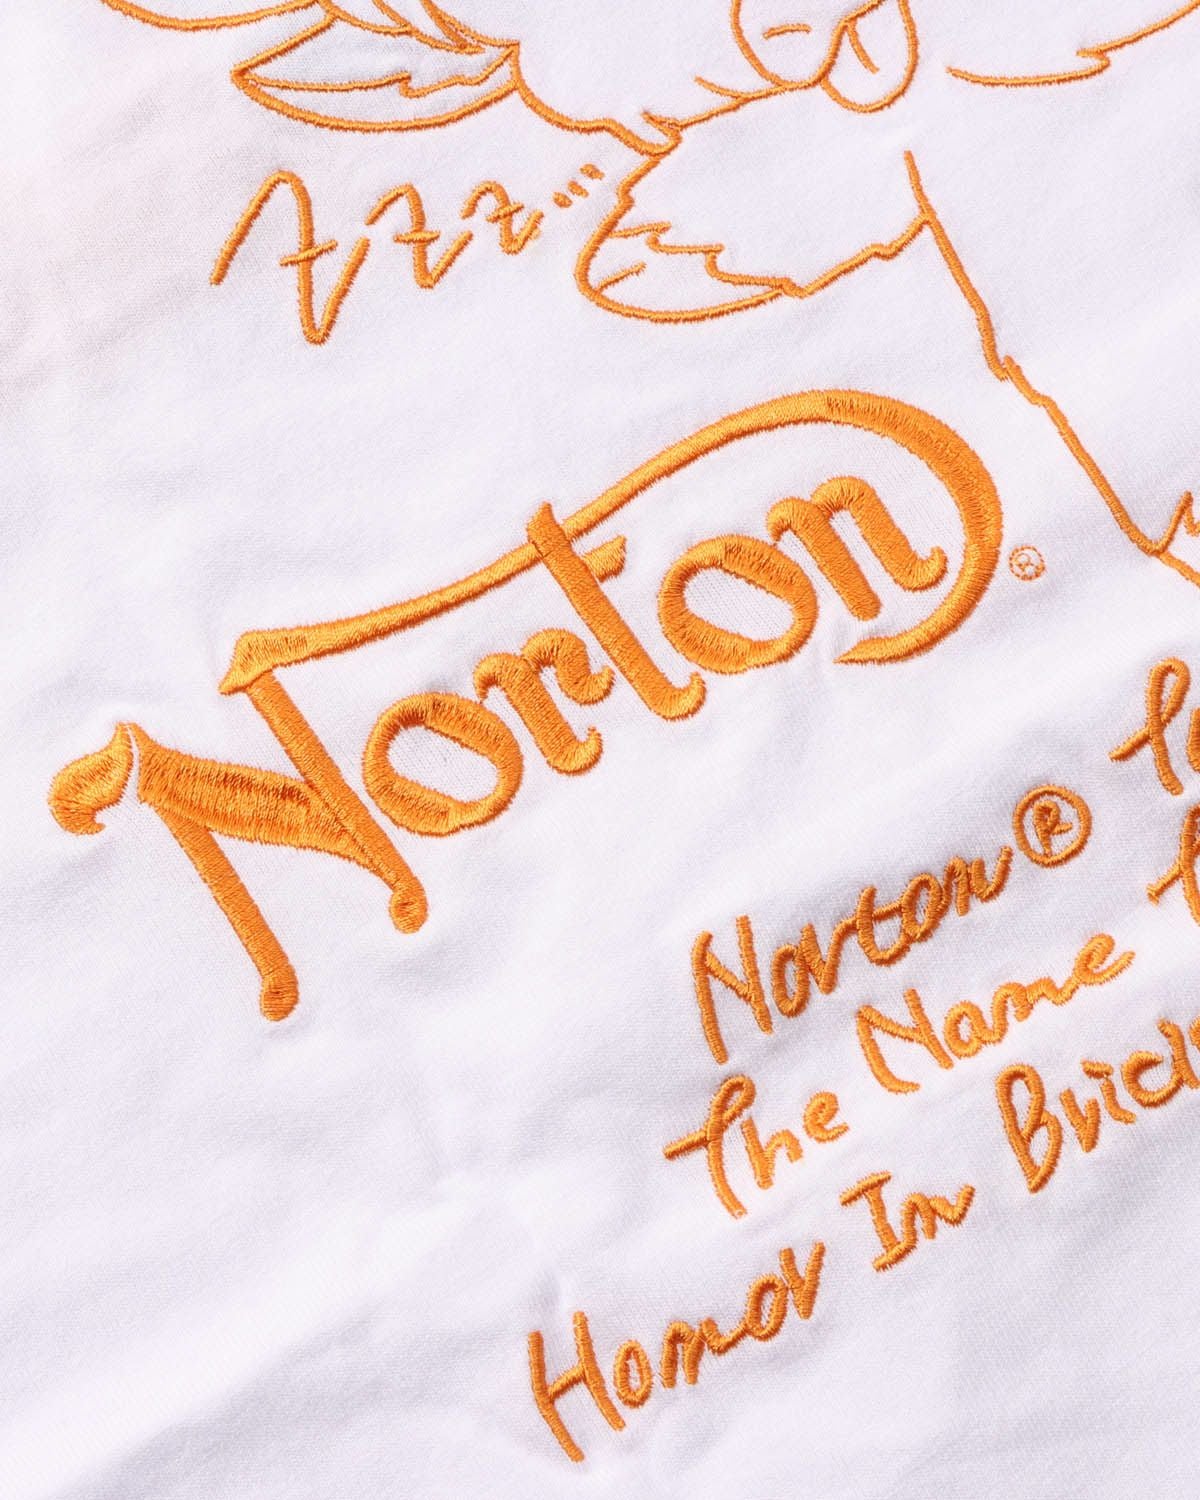 ZZZ...
Norton®
Norton®
The Name
Honor In